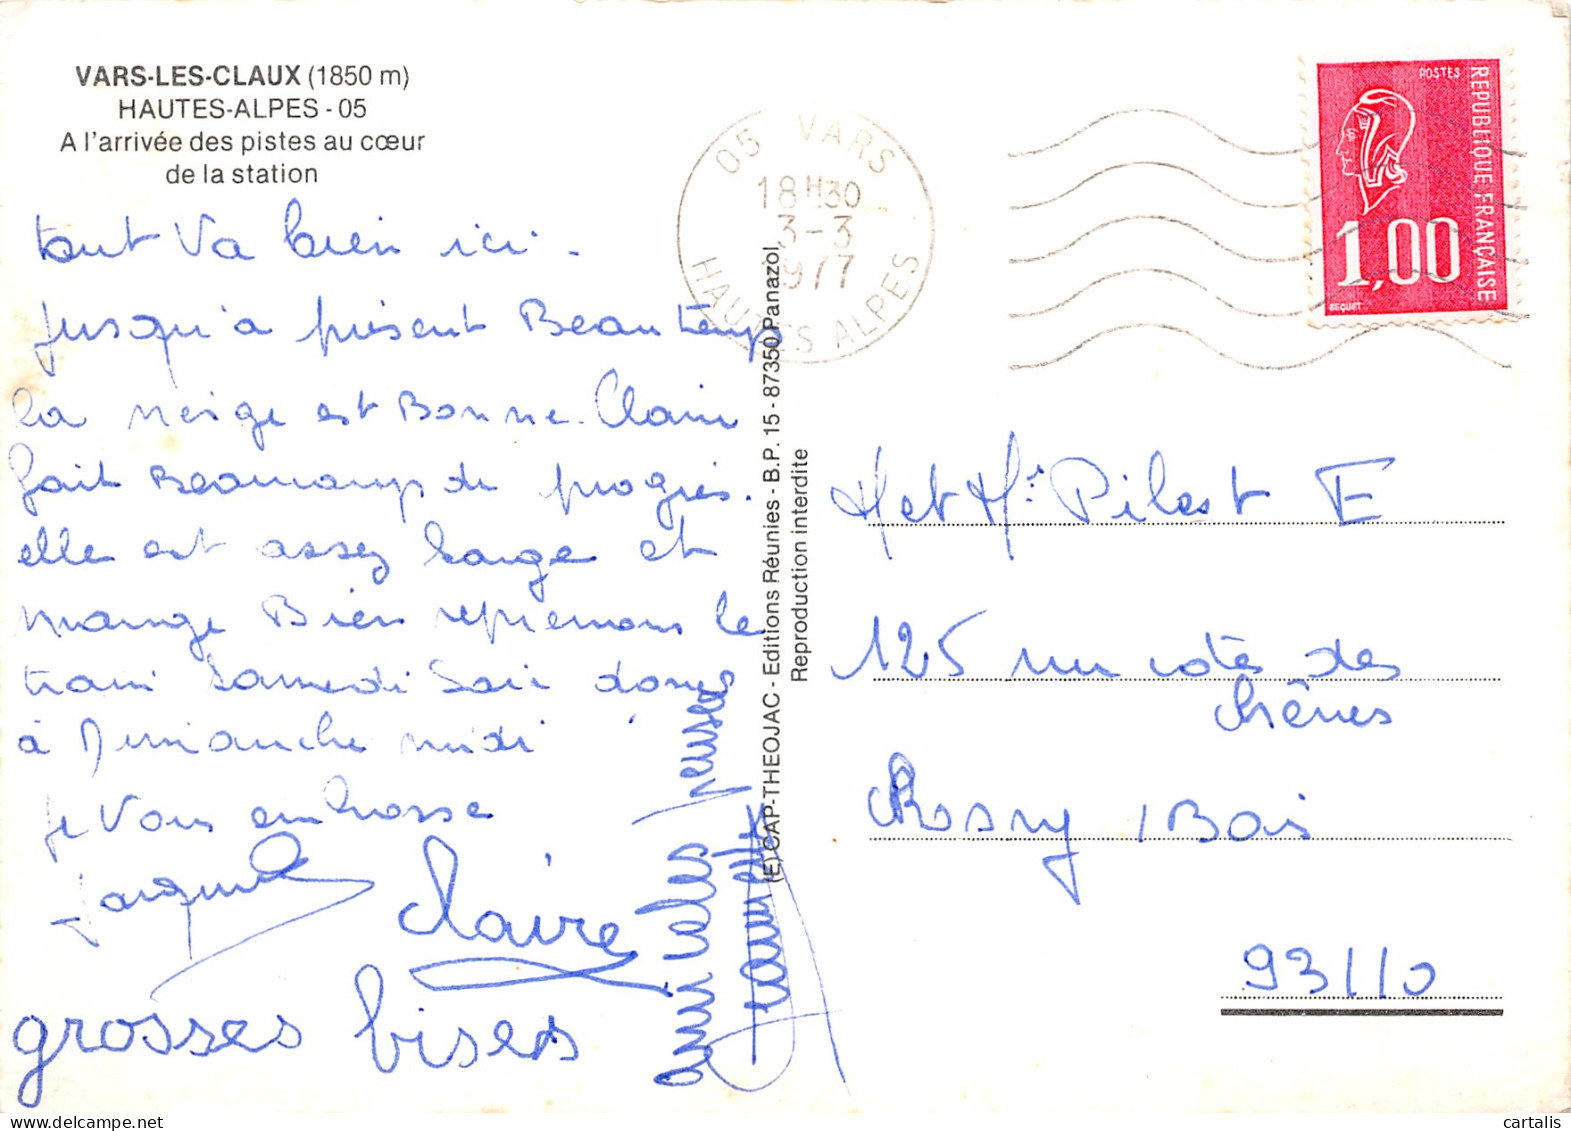 VARS-LES-CLAUX (1850 m)
HAUTES-ALPES - 05
A l'arrivée des pistes au cœur
de la station
tout va bien ici.
jusqu'à présent Beau temps
la neige est Bonne. Claire
fait Beaucoup de progrès.
elle est assez sage et
mange Bien reprenons le
train Samedi Soir donc
à Dimanche midi
je vous embrasse
Jacqueline
Claire
grosses bises
amicales pensées
(E) CAP-THEOJAC - Editions Réunies - B.P. 15 - 87350 Panazol
Reproduction interdite
05 VARS
18H30
3-3
1977
HAUTES ALPES
POSTES
REPUBLIQUE FRANÇAISE
1,00
BEQUET
M et Me Pilast E
125 rue côtes des
chênes
Rosny s/Bois
93110
cartalis
delcampe.net